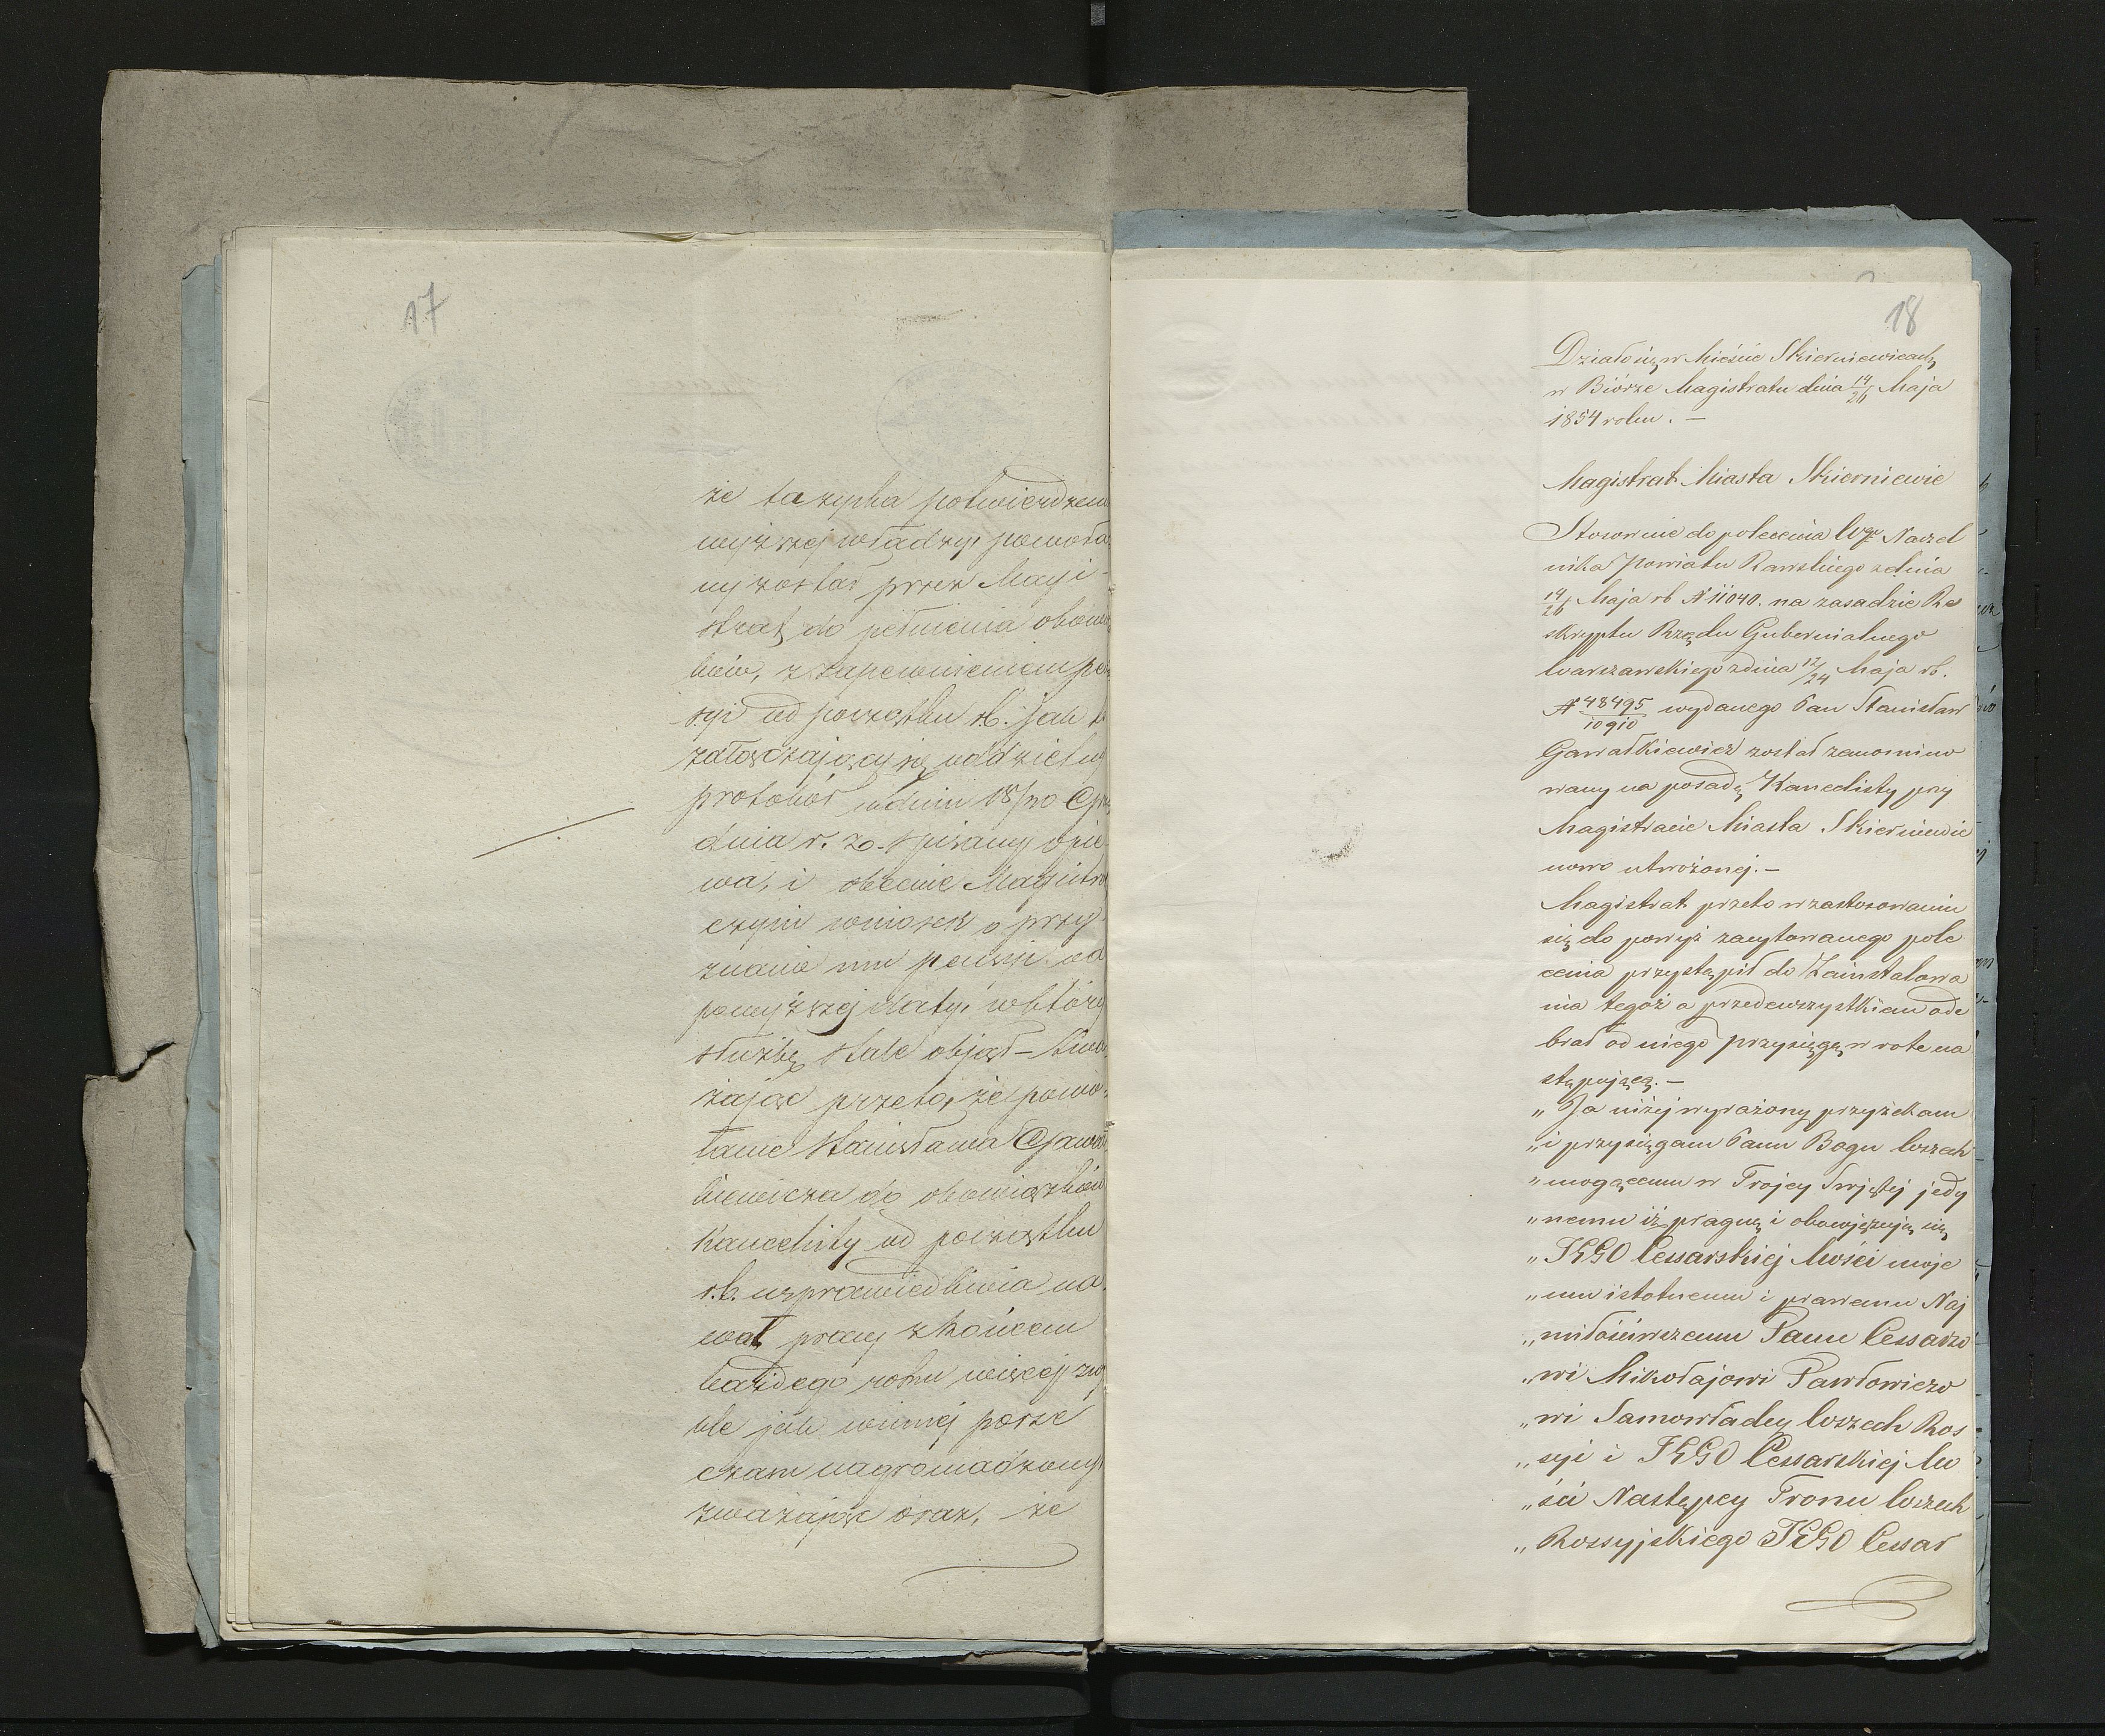 17
że ta zyska potwierdzenie
wyższej władzy, powoła
ny został przez Magi-
strat do pełnienia obowią
ków, z zapewnieniem pen
syi od początku rb. jak
załączający się oddzielny
protokół w dniu 18/30
dnia r. z. spisany opie
wa, i obecnie Magistrat
czyni wniosek o przy
znanie mu pensyi od
powyższej daty, w której
służbę stale objął – Uwa
żając przeto, że powo-
łanie Stanisława Gawał
kiewicza do obowiązków
Kancelisty od początku
r.b. usprawiedliwia na
wał pracy z końcem
każdego roku więcej zwy
kle jak winnej porze
czasu nagromadzony,
zważając oraz, że
18
Działo się w Mieście Skierniewicach
w Biórze Magistratu dnia 14/26 Maja
1854 roku. –
Magistrat Miasta Skierniewic
Stosownie do polecenia Wgo Naczel
nika Powiatu Rawskiego z dnia
14/26 Maja rb N 11040. na zasadzie Re
skryptu Rządu Gubernialnego
Warszawskiego z dnia 12/24 Maja rb.
N 48495/10910 wydanego Pan Stanisław
Gawałkiewicz został zanomino
wany na posadę Kancelisty przy
Magistracie Miasta Skierniewic
nowo utworzonej. –
Magistrat przeto w zastosowaniu
się do powyż zacytowanego pole
cenia przystąpił do Zainstalowa
nia tegoż a przedewszystkiem ode
brał od niego przysięgę w rotę na
stępującą. –
„ Ja niżej wyrażony przyżekam
„ i przysięgam Panu Bogu Wszech
„ mogącemu w Trojcy Swjętej jedy
„ nemu iż pragnę i obowjązuję się
„ JEGO Cessarskiej Mości moje
„ mu istotnemu i prawemu Naj
„ miłościwszemu Panu Cessarzo
„ wi Mikołajowi Pawłowiczo
„ wi Samowładcy Wszech Ros
„ syi i JEGO Cessarskiej Mo
„ ści Następcy Tronu Wszech
„ Rossyjskiego JEGO Cessar